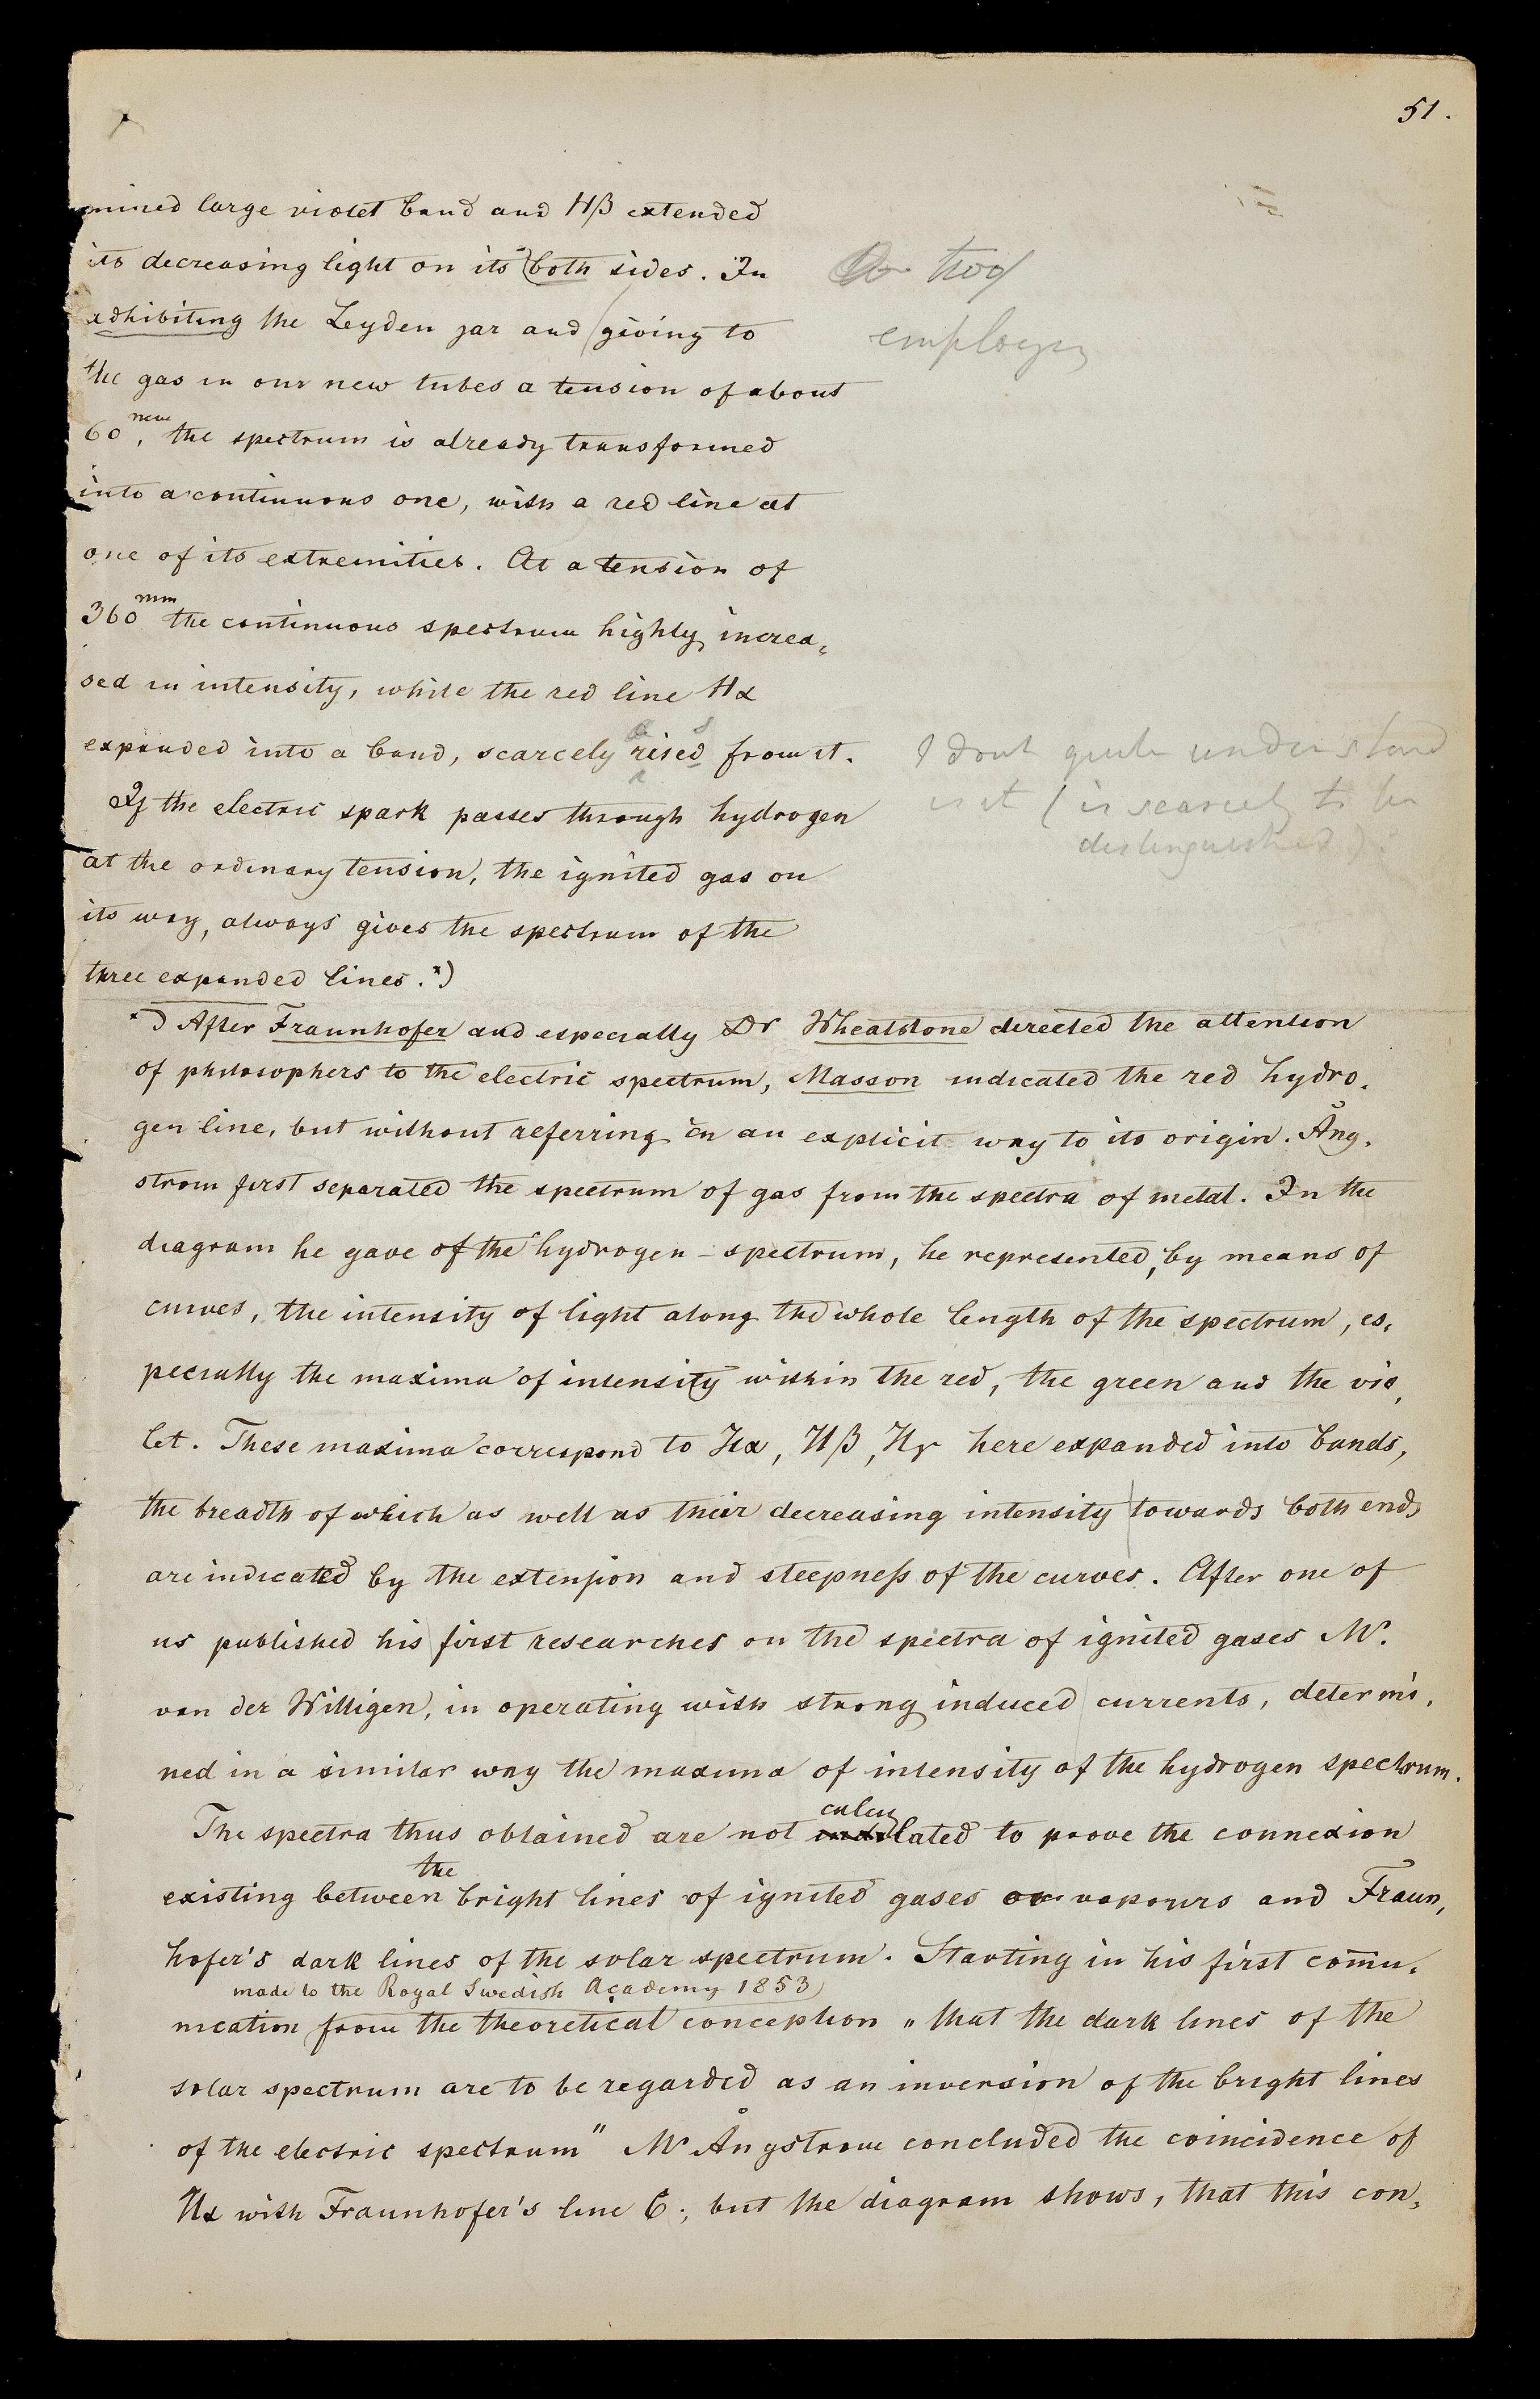 51.
mined large violet band and Hβ extended
its decreasing light on its both sides. In
two
adhibiting the Leyden jar and giving to
employing
the gas in our new tubes a tension of about
60mm, the spectrum is already transformed
into a continuous one, with a red line at
one of its extremities. At a tension of
360mm the continuous spectrum highly increa-
sed in intensity, while the red line Hα
expanded into a band, scarcely rised from it.
I dont quite understand
is it (is scarcely to be
distinguished)?
If the electric spark passes through hydrogen
at the ordinary tension, the ignited gas on
its way, always gives the spectrum of the
three expanded lines.*)
*) After Fraunhofer and especially Dr Wheatstone directed the attention
of philosophers to the electric spectrum, Masson indicated the red hydro-
gen line, but without referring in an explicit way to its origin. Ång-
strom first separated the spectrum of gas from the spectra of metal. In the
diagram he gave of the hydrogen-spectrum, he represented, by means of
curves, the intensity of light along the whole length of the spectrum, es-
pecially the maxima of intensity within the red, the green and the vio-
let. These maxima correspond to Hα, Hβ, Hγ here expanded into bands,
the breadth of which as well as their decreasing intensity towards both ends
are indicated by the extension and steepness of the curves. After one of
us published his first researches on the spectra of ignited gases Mr.
van der Willigen, in operating with strong induced currents, determi-
ned in a similar way the maxima of intensity of the hydrogen spectrum.
calcu
The spectra thus obtained are not lated to prove the connexion
the
existing between bright lines of ignited gases or vapours and Fraun-
hofer's dark lines of the solar spectrum. Starting in his first comu-
made to the Royal Swedish Academy 1853
nication from the theoretical conception „that the dark lines of the
solar spectrum are to be regarded as an inversion of the bright lines
of the electric spectrum" Mr Ångstrom concluded the coincidence of
Hα with Fraunhofer's line C; but the diagram shows, that this con-